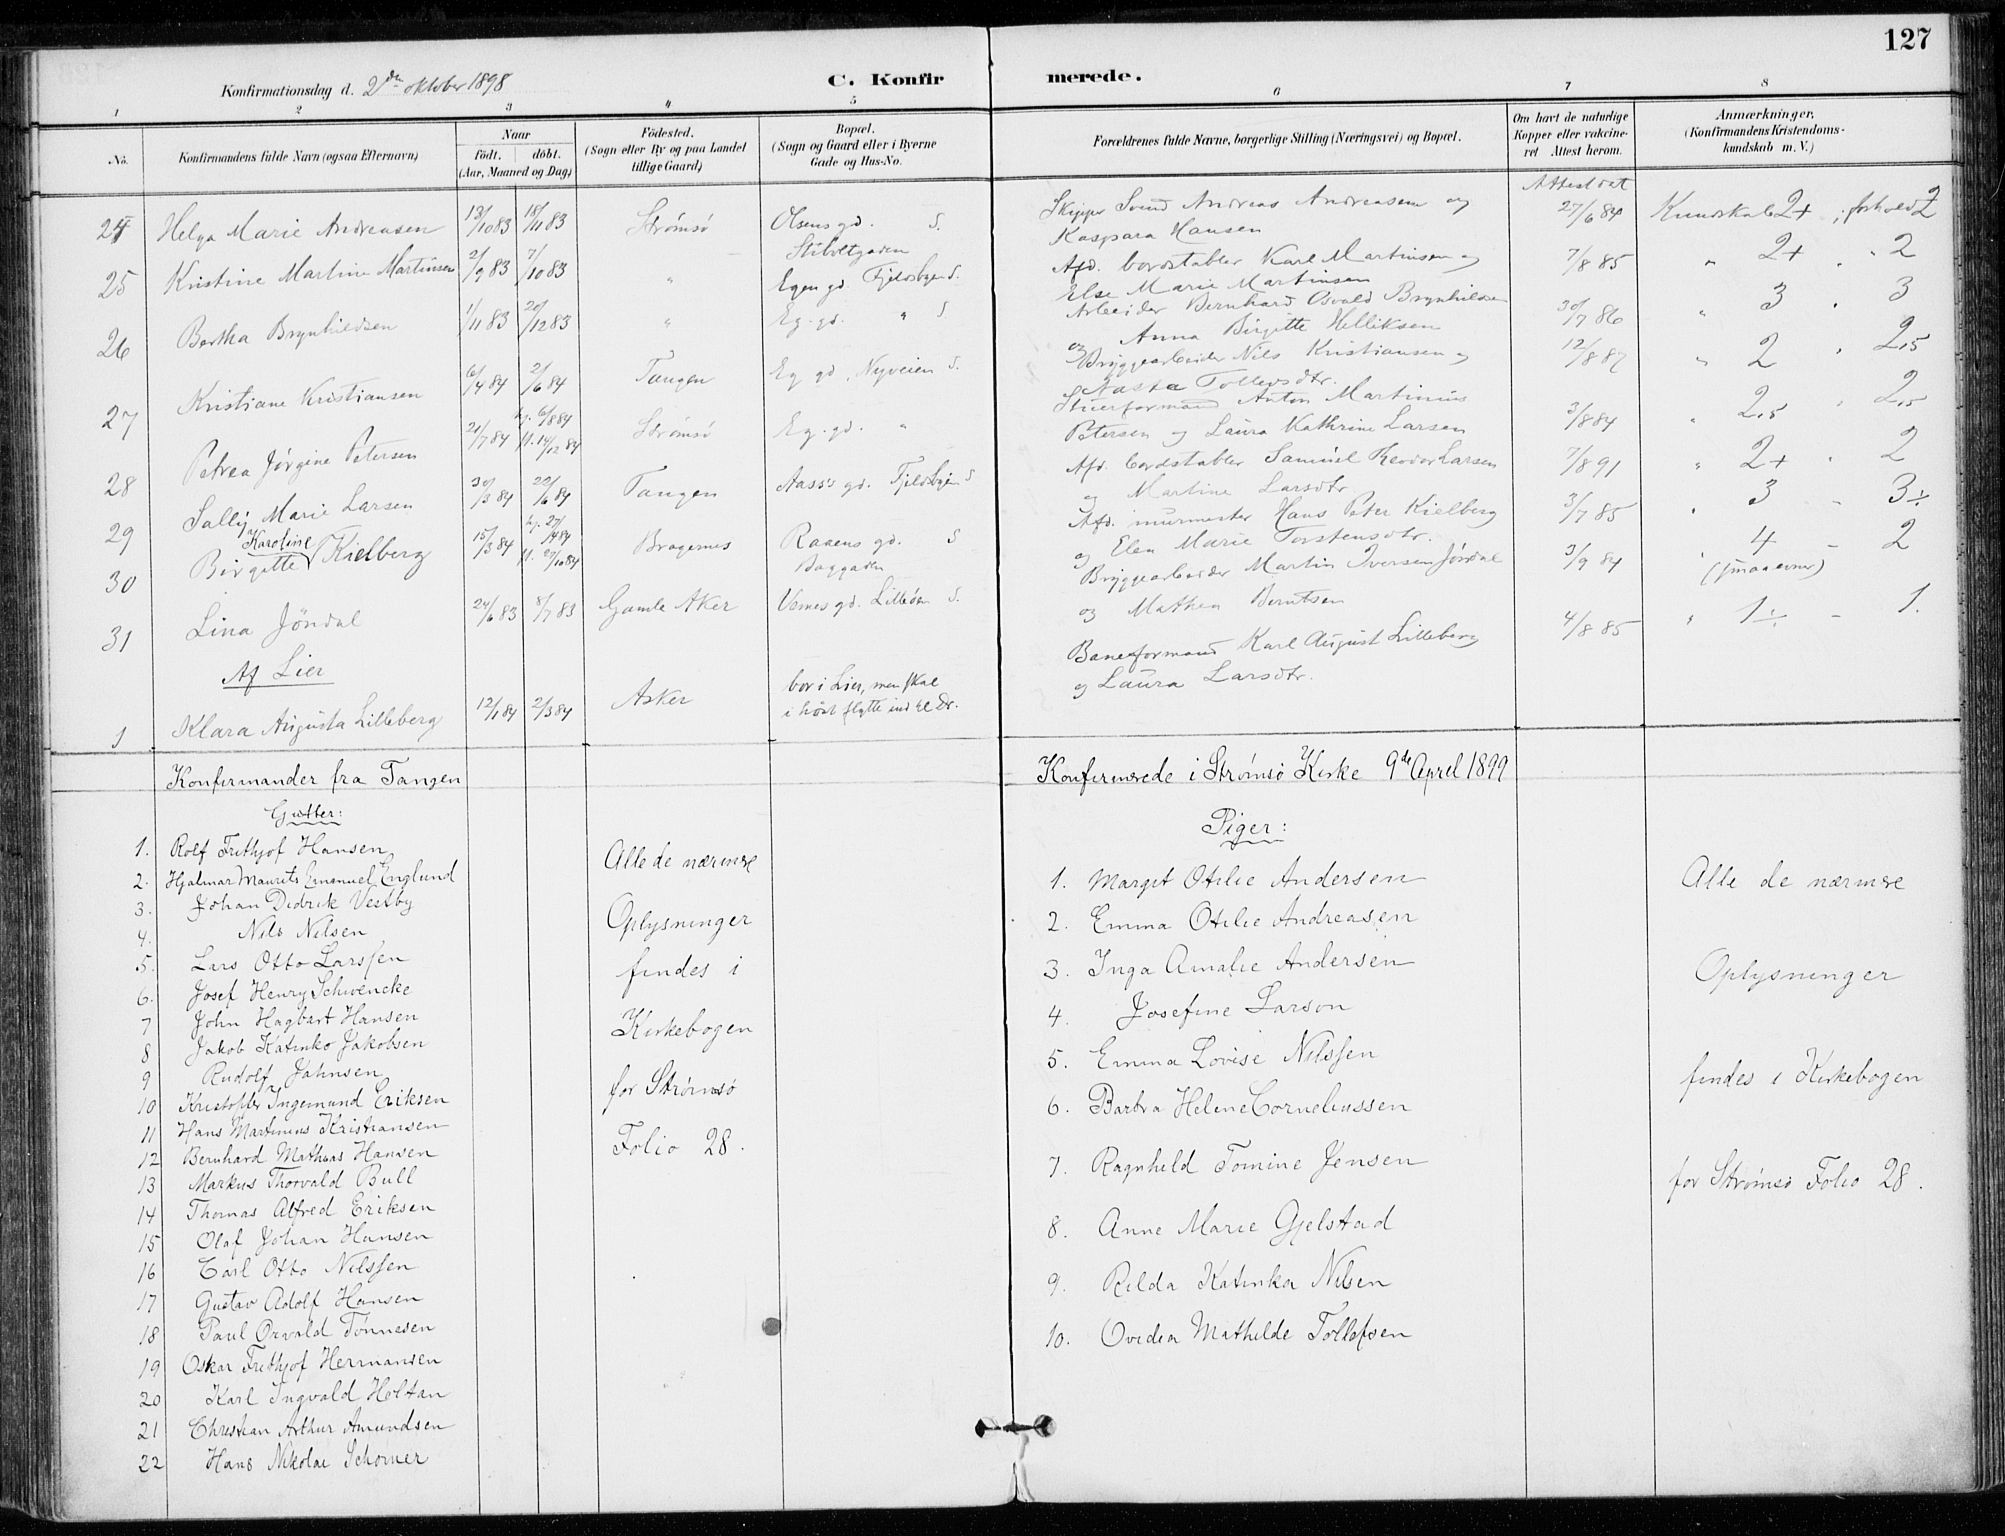 127
Konfirmationsdag d. 2den oktober 1898
C. Konfirmerede.
1 2 3 4 5 6 7 8
No.
Konfirmandens fulde Navn (ogsaa Efternavn)
Naar
födt. döbt.
(Aar, Maaned og Dag)
Födested.
(Sogn eller By og paa Landet
tillige Gaard)
Bopæl.
(Sogn og Gaard eller i Byerne
Gade og Hus-No.
Forældrenes fulde Navne, borgerlige Stilling (Næringsvei) og Bopæl.
Om havt de naturlige
Kopper eller vakcine-
ret Attest herom.
Anmærkninger.
(Konfirmandens Kristendoms-
kundskab m. V.)
24 Helga Marie Andreasen 13/10 83 18/11 83 Strømsø Olsens gd. S.
Stiboltgaden
Skipper Svend Andreas Andreasen og
Kaspara Hansen
Attest dat
27/6 84 Kundskab 2+ ; forhold 2
25 Kristine Martine Martinsen 2/9 83 7/10 83 " Egen gd. Fjeldbyen S.
Afd. bordstabler Karl Martinsen og
Else Marie Martinsen
7/8 85 " 2+ " 2
26 Bertha Brynhildsen 1/11 83 20/12 83 " Eg. gd. " S
Arbeider Bernhard Osvald Brynhildsen
og Anna Birgitte Helliksen
30/7 86 " 3 . 3
27 Kristiane Kristiansen 6/4 84 2/6 84 Tangen Eg gd, Nyveien S.
Bryggearbeider Nils Kristiansen og
Aasta Tollevsdtr.
12/8 87 " 2 " 2,5
28 Petrea Jørgine Petersen 21/7 84 hj. 6/8 84 k. 14/12 84 Strømsø Eg. gd. "
Stuerformand Anton Martinius
Petersen og Laura Kathrine Larsen
3/8 84 " 2,5 " 2,5
29 Sally Marie Larsen 30/3 84 22/6 84 Tangen Aass's gd. Fjeldbyen S
Afd. bordstabler Samuel Teodor Larsen
og Martine Larsdtr.
7/8 91 " 2+ " 2
30 Birgitte Karoline Kielberg 15/3 84 hj. 27/4 84 k. 27/10 84 Bragernes Raaens gd. S
Baggaden
Afd. murmester Hans Peter Kielberg
og Elen Marie Torstensdtr.
3/7 85 " 3 - 3÷
31 Lina Jöndal 24/6 83 8/7 83 Gamle Aker Vemes gd. Lilleöen S.
Bryggearbeider Martin Iversen Jöndal
og Mathea Berntsen
3/9 84 " 4 - 2
(smaa evner)
Af Lier
1 Klara Augusta Lilleberg 12/1 84 2/3 84 Asker bor i Lier, men skal
i höst flytte ind til Dr.
Baneformand Karl August Lilleberg
og Laura Larsdtr.
4/8 85 " 1÷ - 1.
Konfirmander fra Tangen
Konfirmerede i Strømsö Kirke 9de April 1899
Gutter:
1. Rolf Frithjof Hansen
2. Hjalmar Maurits Emanuel Englund
3. Johan Didrik Vestby
4. Nils Nilsen
5. Lars Otto Larssen
6. Josef Henry Schwencke
7 John Hagbart Hansen
8 Jakob Katinko Jakobsen
9 Rudolf Jahnsen
10 Kristoffer Ingemund Eriksen
11 Hans Martinius Kristiansen
12 Bernhard Mathias Hansen
13 Markus Thorvald Bull
14 Thomas Alfred Eriksen
15 Olaf Johan Hansen
16 Carl Otto Nilssen
17 Gustav Adolf Hansen
18 Paul Orvald Tönnesen
19 Oskar Frithjof Hermansen
20 Karl Ingvald Holtan
21 Christian Arthur Amundsen
22 Hans Nikolai Schomer
Alle de nærmere
Oplysninger
findes i
Kirkebogen
for Strømsö
Folio 28.
Piger:
1. Margit Otilie Andersen
2. Emma Otilie Andreasen
3. Inga Amalie Andersen
4. Josefine Larson
5. Emma Lovise Nilssen
6. Barbra Helene Corneliussen
7. Ragnhild Tomine Jensen
8. Anne Marie Gjelstad
9. Rilda Katinka Nilsen
10. Ovidia Mathilde Tollefsen
Alle de nærmere
Oplysninger
findes i Kirkebogen
for Strømsö Folio 28.